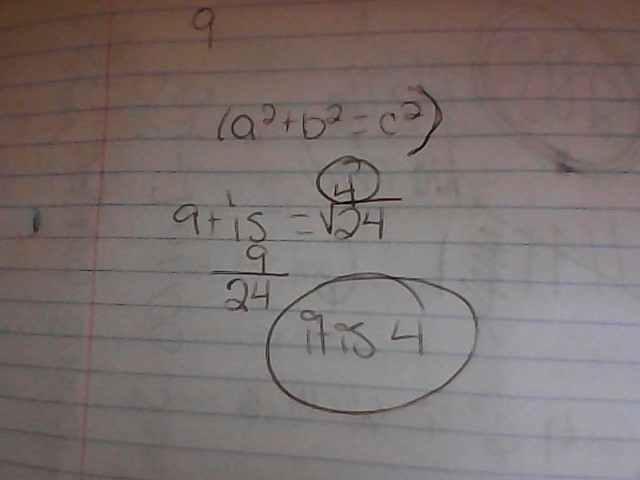 9
(a²+b²=c²)
4
1
9+15=√24
9
24
it is 4